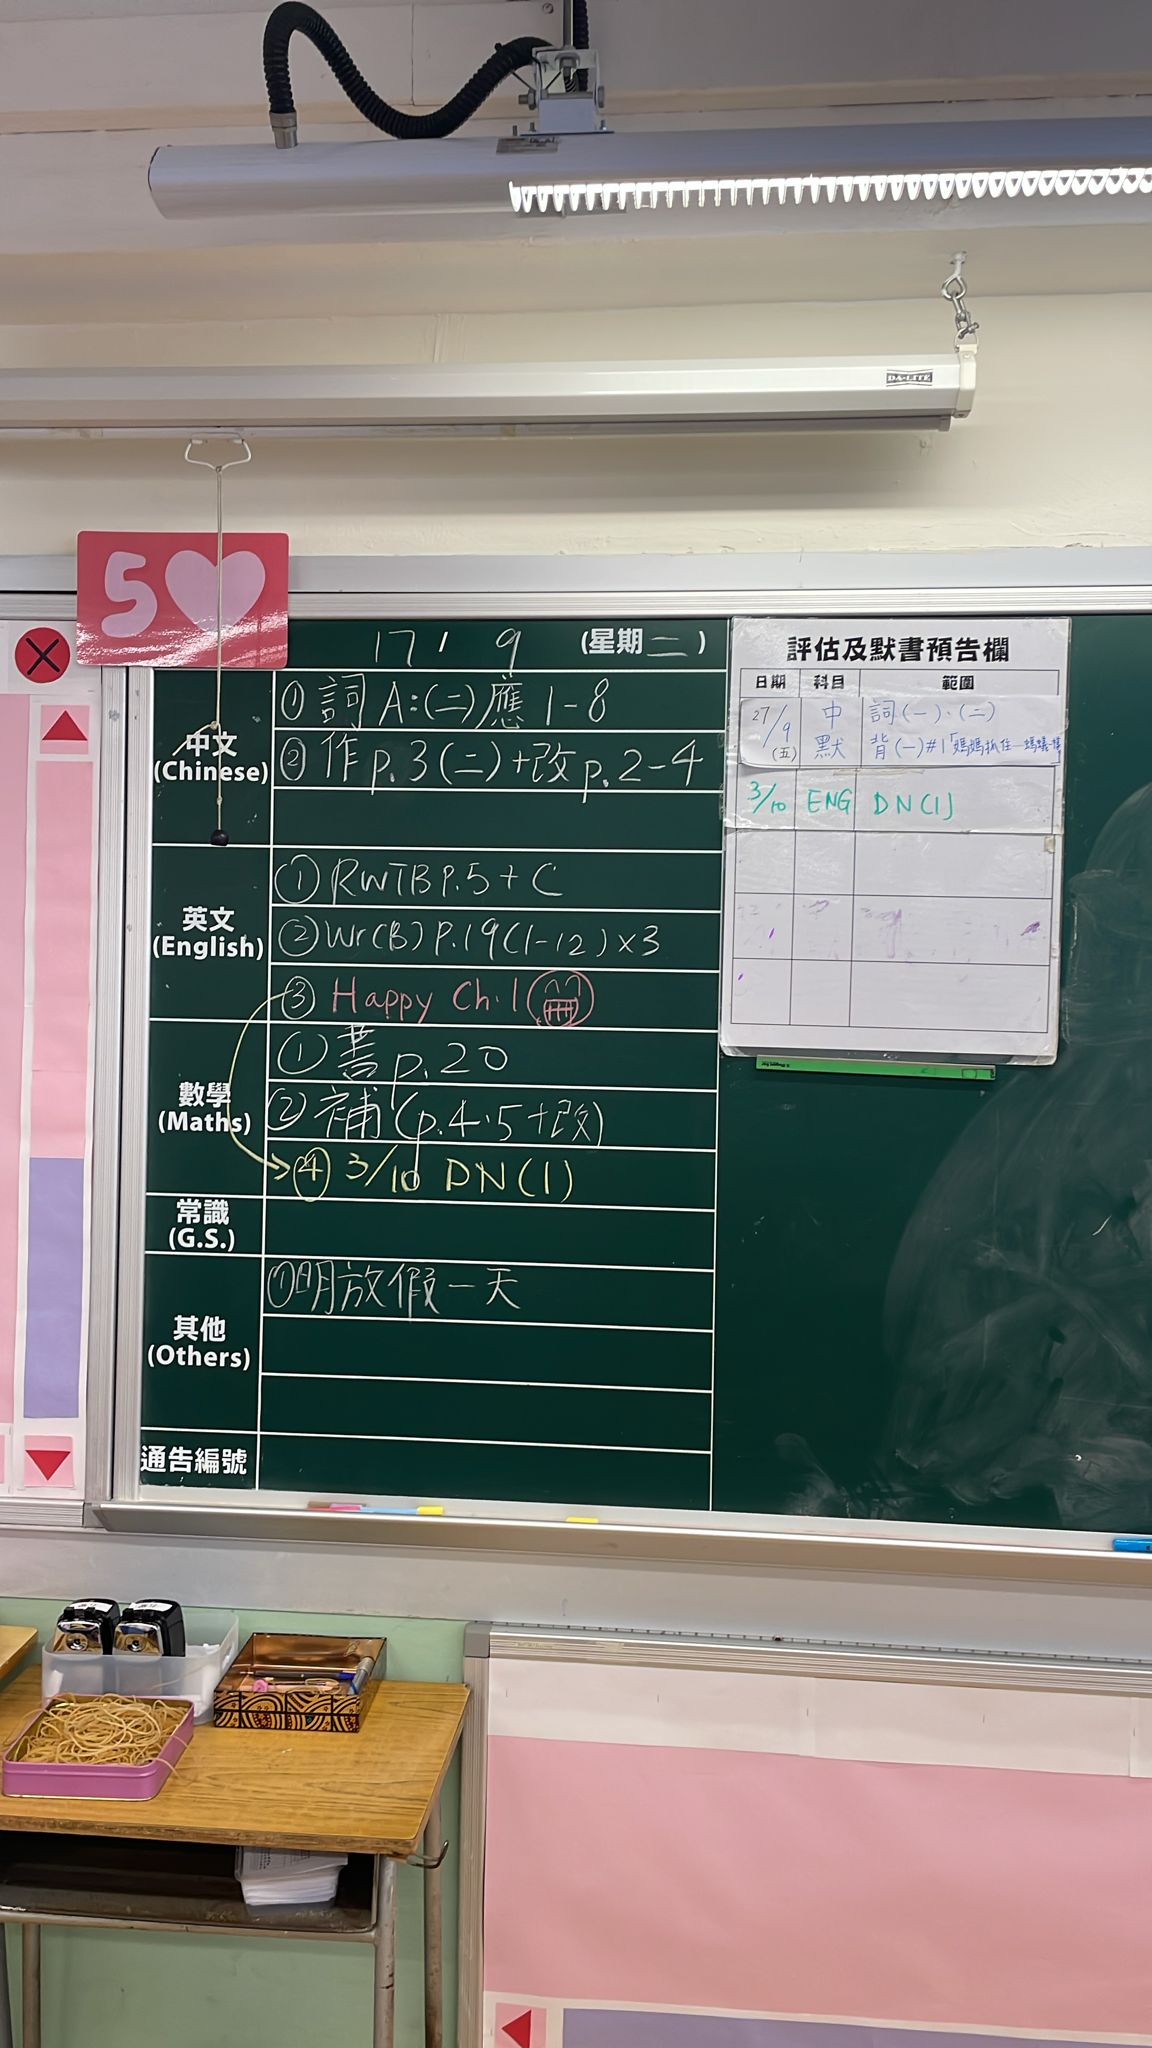 DA-LITE
5
17 / 9 (星期二)
中文
(Chinese)
① 詞 A:(二)應 1-8
② 作 p.3(二)+改 p.2-4
英文
(English)
① RWTB P.5 + C
② Wr(B) P.19(1-12)×3
③ Happy Ch.1
數學
(Maths)
① 書 p.20
② 補(p.4.5+改)
④ 3/10 DN(1)
常識
(G.S.)
其他
(Others)
① 明放假一天
通告編號
評估及默書預告欄
日期 科目 範圍
27/9 (五) 中默 詞(一)、(二)
背(一)#1「媽媽抓住一
3/10 ENG DN(1)